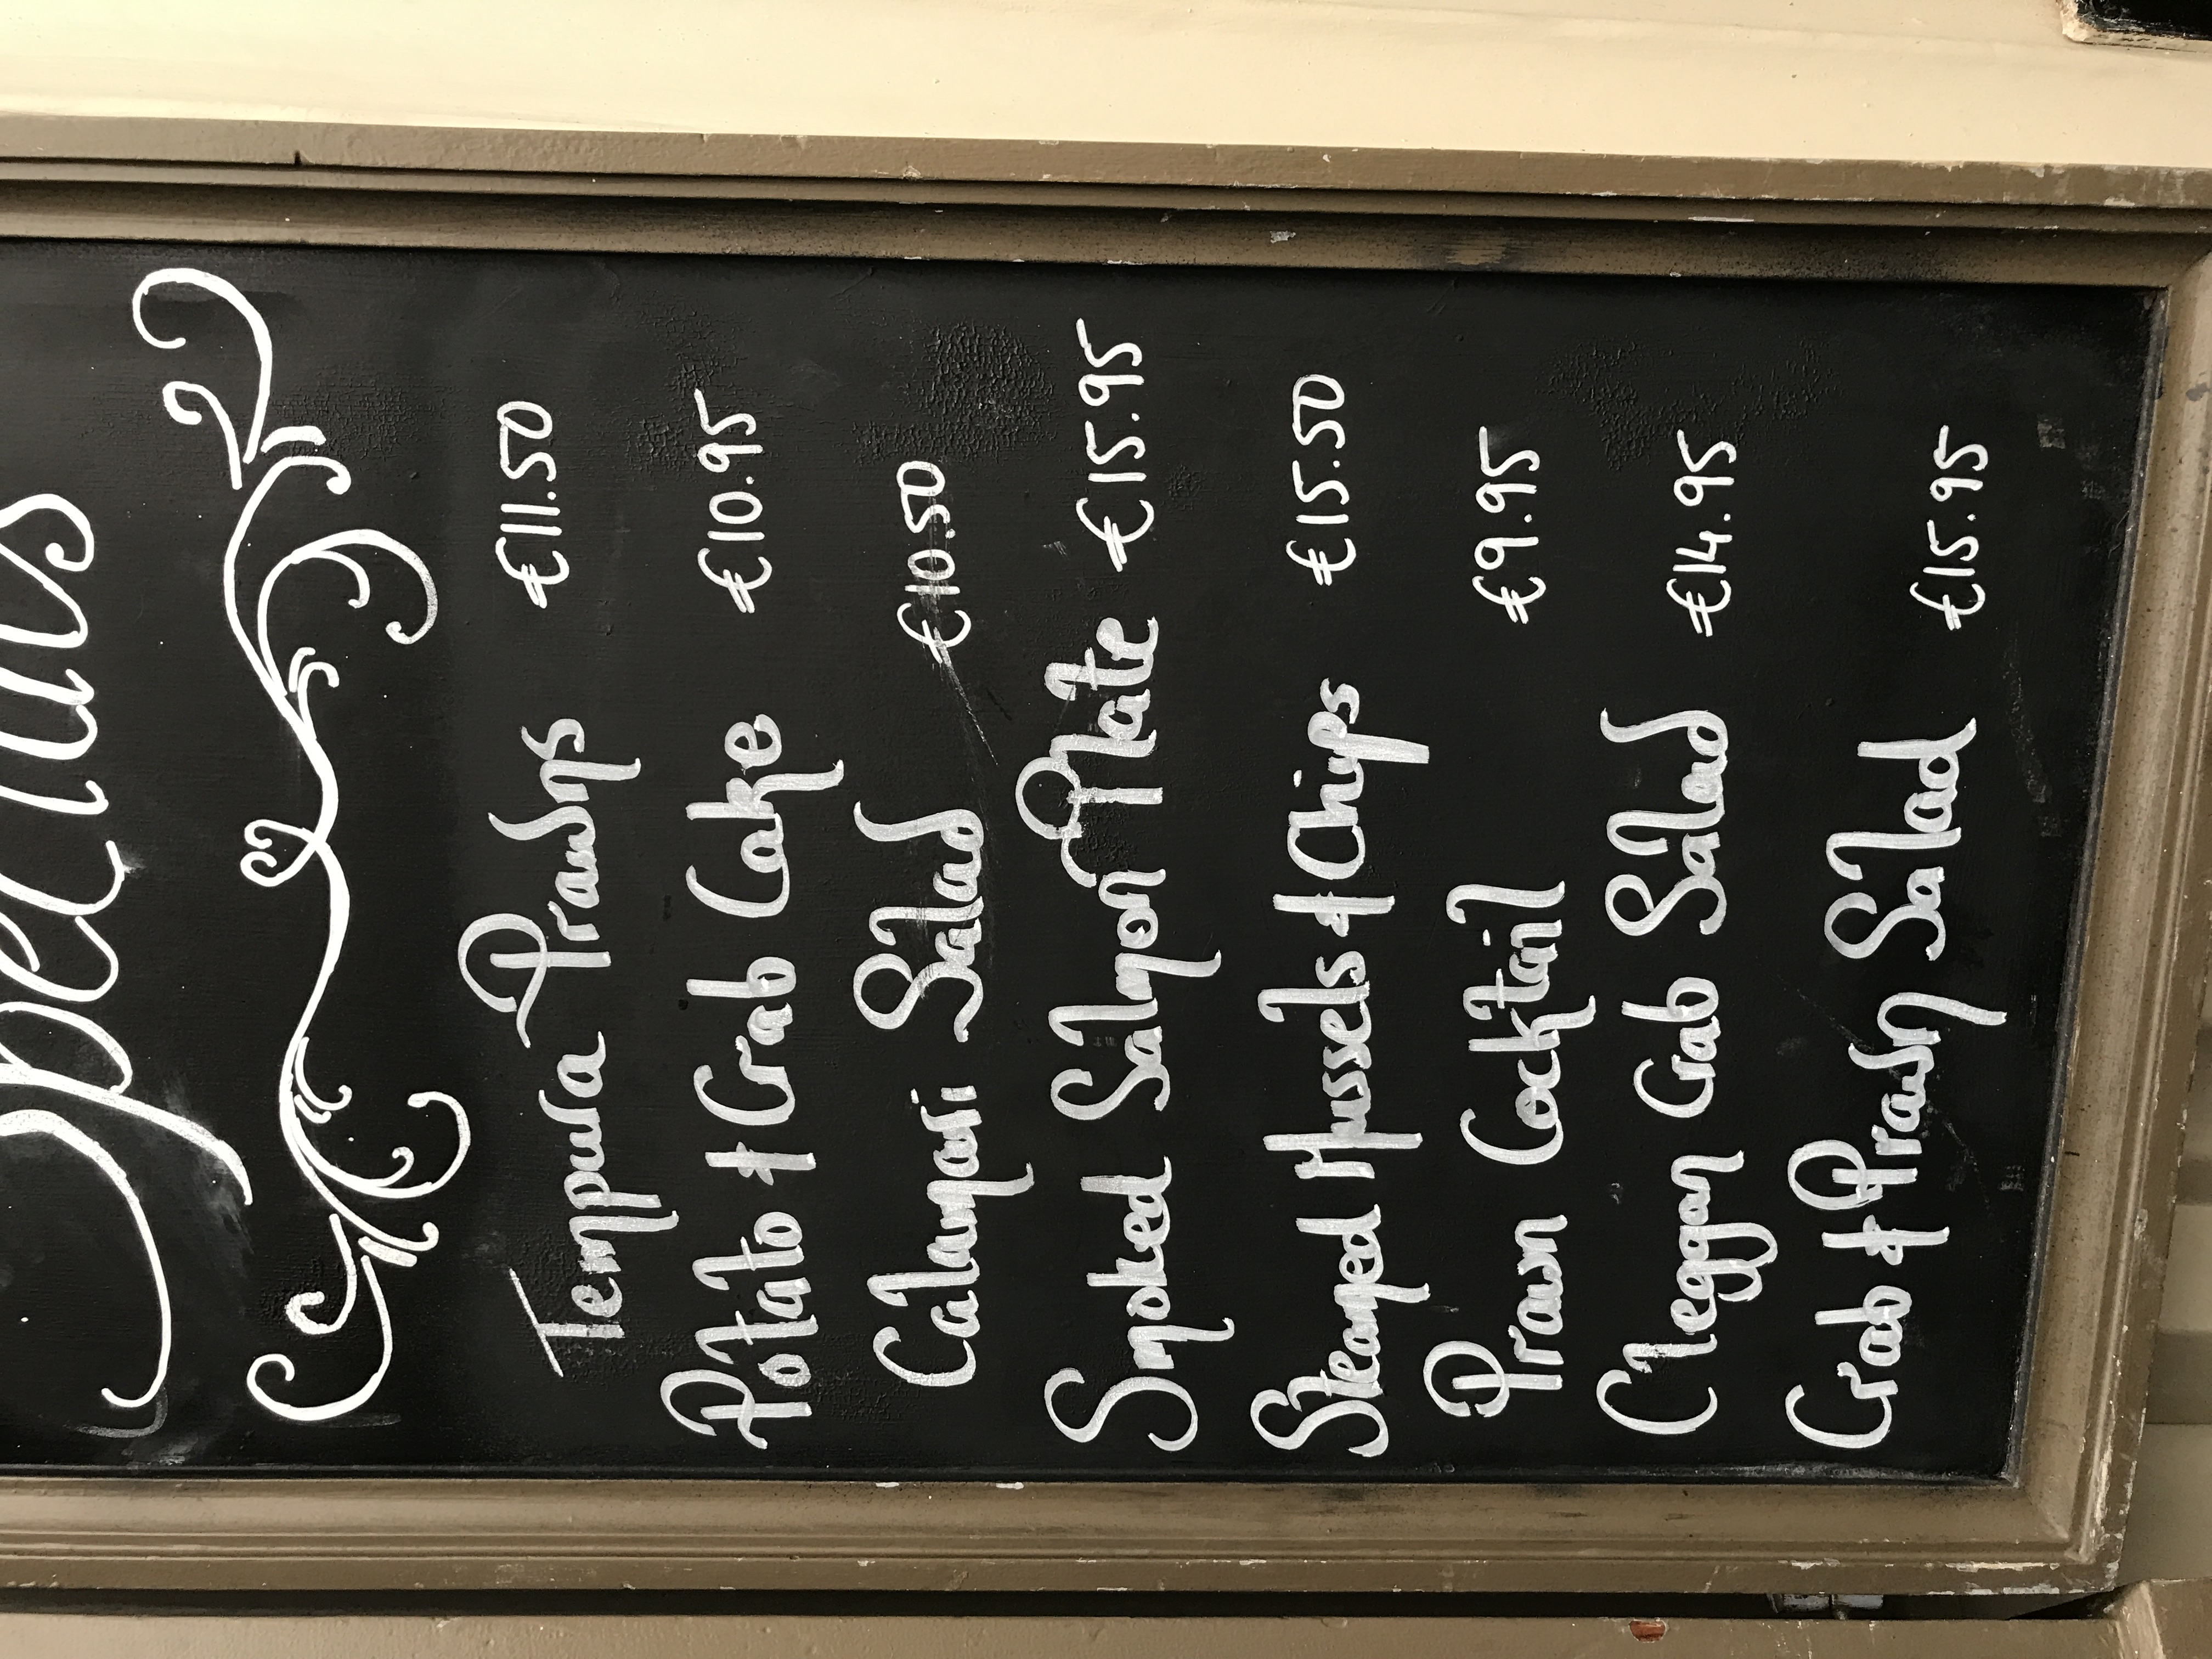 Specials
Tempura Prawns €11.50
Potato & Crab Cake €10.95
Calamari Salad €10.50
Smoked Salmon Plate €15.95
Steamed Mussels & Chips €15.50
Prawn Cocktail €9.95
Cleggan Crab Salad €14.95
Crab & Prawn Salad €15.95